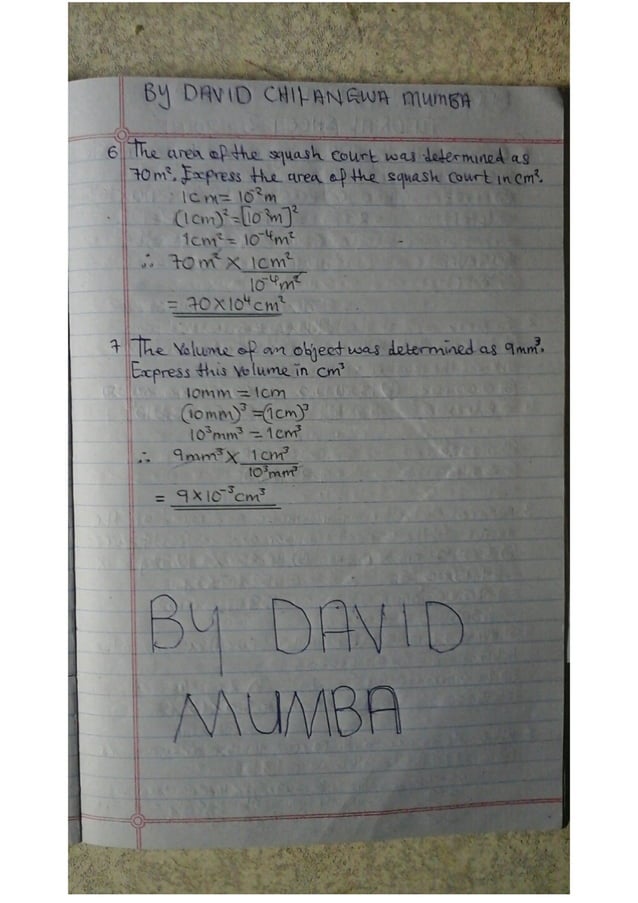 BY DAVID CHILANGWA MUMBA
6 The area of the squash court was determined as
70m². Express the area of the squash court in cm².
1cm = 10⁻²m
(1cm)² = [10⁻²m]²
1cm² = 10⁻⁴m²
∴ 70m² × 1cm²
10⁻⁴m²
= 70×10⁴cm²
7 The Volume of an object was determined as 9mm³.
Express this volume in cm³
10mm = 1cm
(10mm)³ = (1cm)³
10³mm³ = 1cm³
∴ 9mm³ × 1cm³
10³mm³
= 9×10⁻³cm³
BY DAVID
MUMBA